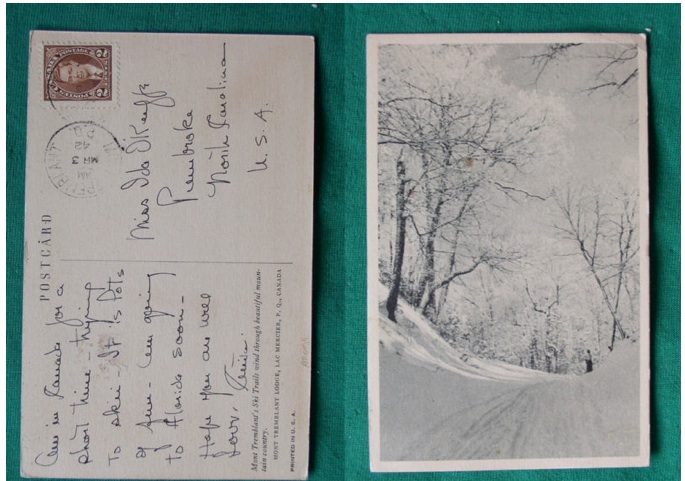 POSTCARD
Am in Canada for a
short time - trying
to skii. It is lots
of fun - Am going
to Florida soon -
Hope you are well
Love,
Miss Ida O'Keeffe
Pembroke
North Carolina
U. S. A.
Mont Tremblant's Ski Trails wind through beautiful moun-
tain country.
MONT TREMBLANT LODGE, LAC MERCIER, P. Q., CANADA
PRINTED IN U. S. A.
POSTAGE
2 2